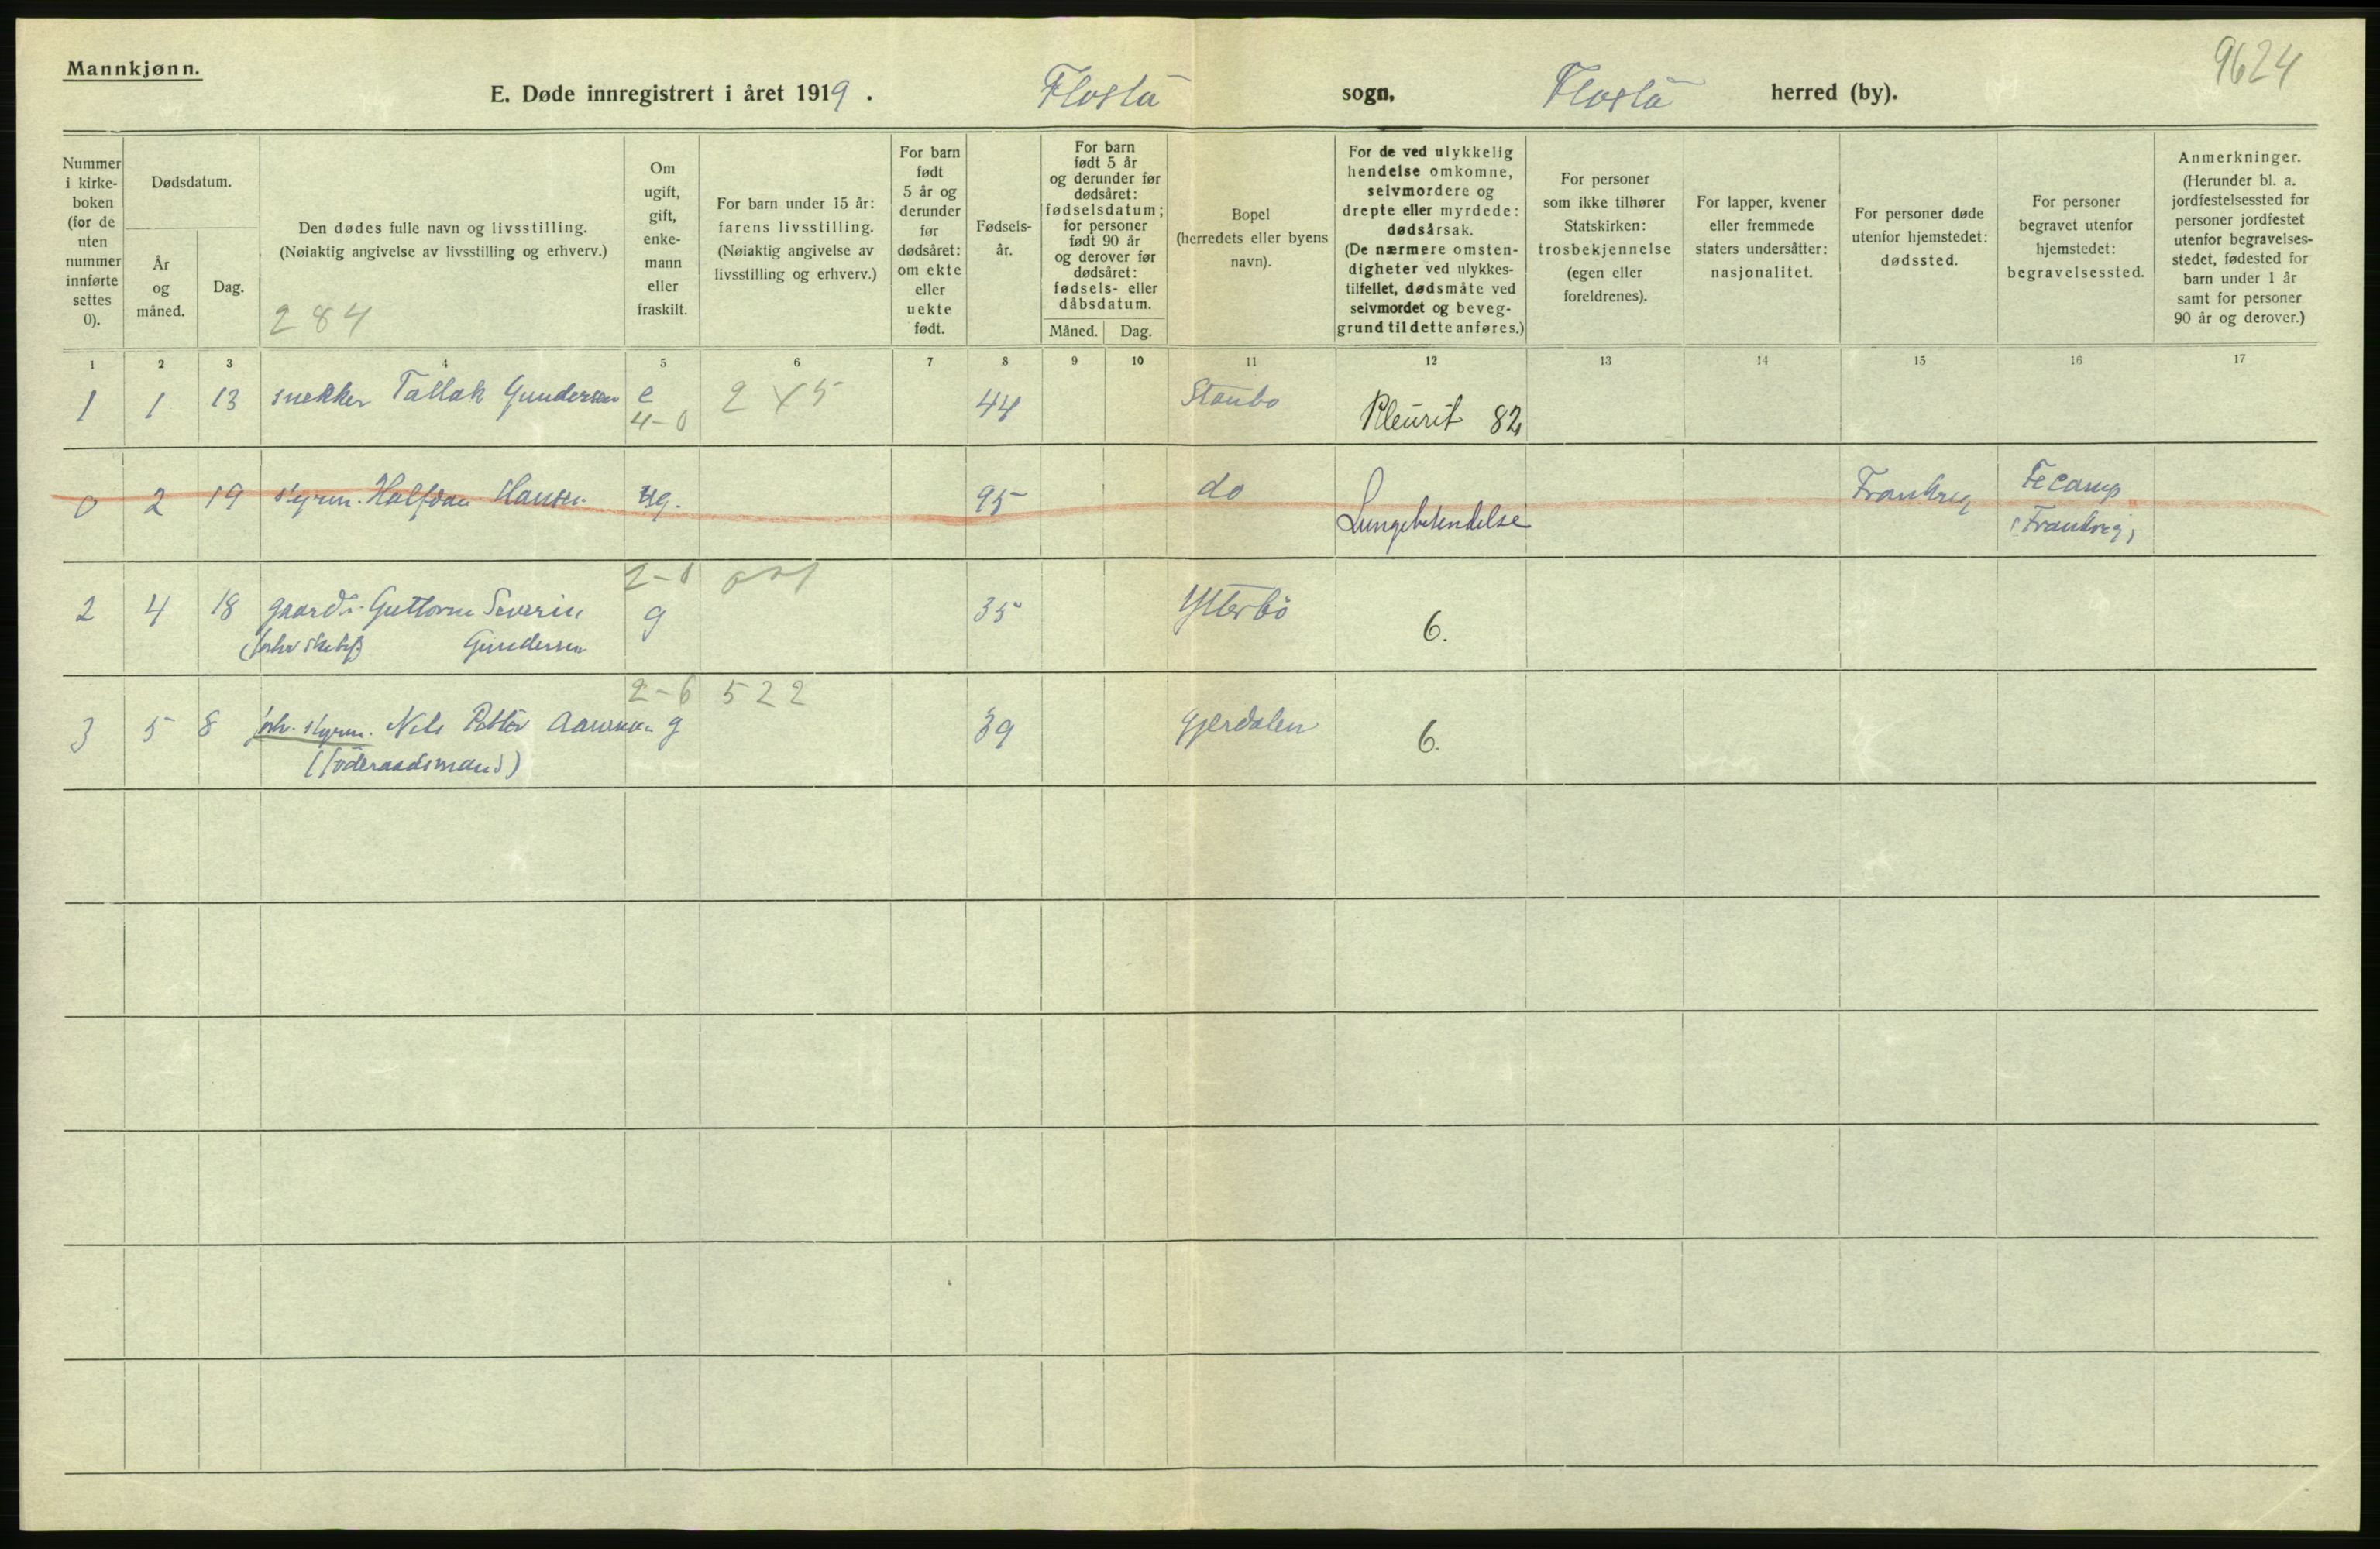 Mannkjønn.
9624
E. Døde innregistrert i året 1919. Flosta sogn, Flosta herred (by).
Nummer i kirke-boken (for de uten nummer innførte settes 0).
Dødsdatum.
År og måned.
Dag.
Den dødes fulle navn og livsstilling.
(Nøiaktig angivelse av livsstilling og erhverv.)
284
Om ugift, gift, enke-mann eller fraskilt.
For barn under 15 år: farens livsstilling.
(Nøiaktig angivelse av livsstilling og erhverv.)
For barn født 5 år og derunder før dødsåret: om ekte eller uekte født.
Fødsels-år.
For barn født 5 år og derunder før dødsåret: fødselsdatum; for personer født 90 år og derover før dødsåret: fødsels- eller dåbsdatum.
Måned. Dag.
Bopel (herredets eller byens navn).
For de ved ulykkelig hendelse omkomne, selvmordere og drepte eller myrdede: dødsårsak.
(De nærmere omsten-digheter ved ulykkes-tilfellet, dødsmåte ved selvmordet og beveg-grund til dette anføres.)
For personer som ikke tilhører Statskirken: trosbekjennelse (egen eller foreldrenes).
For lapper, kvener eller fremmede staters undersåtter: nasjonalitet.
For personer døde utenfor hjemstedet: dødssted.
For personer begravet utenfor hjemstedet: begravelsessted.
Anmerkninger.
(Herunder bl. a. jordfestelsessted for personer jordfestet utenfor begravelses-stedet, fødested for barn under 1 år samt for personer 90 år og derover.)
1 2 3 4 5 6 7 8 9 10 11 12 13 14 15 16 17
1 1 13 snekker Tallak Gundersen e 2x5 44 Staubo Pleurit 82
4-0
0 2 19 styrm. Halfdan Hansen ug. 95 do Lungebetendelse Frankrig Fecamp
(Frankrig)
2-0
2 4 18 gaardbr. Guttorm Severin g 35 Ytterbö 6.
Gundersen
2-6 522
3 5 8 forh. styrm. Nils Petter Aanonsen g 39 Gjerdalen 6.
(föderaadsmand)